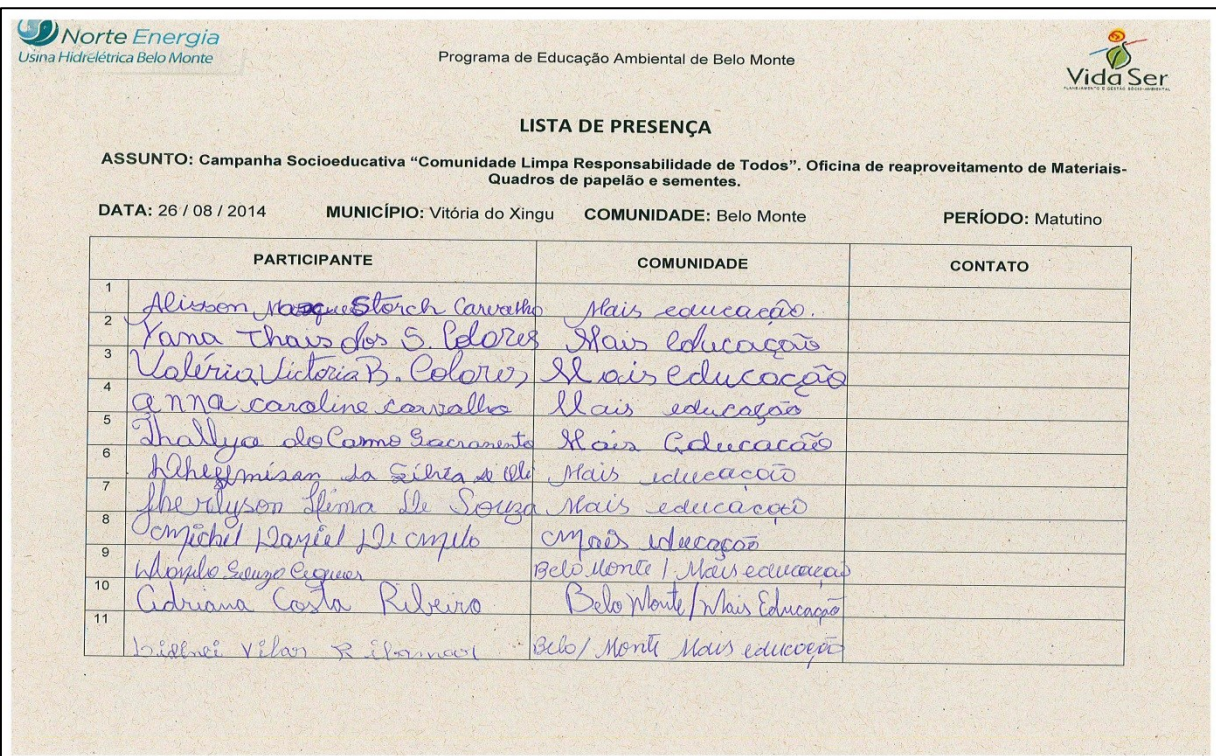 Norte Energia
Usina Hidrelétrica Belo Monte
Programa de Educação Ambiental de Belo Monte
Vida Ser
LISTA DE PRESENÇA
ASSUNTO: Campanha Socioeducativa “Comunidade Limpa Responsabilidade de Todos”. Oficina de reaproveitamento de Materiais-
Quadros de papelão e sementes.
DATA: 26 / 08 / 2014 MUNICÍPIO: Vitória do Xingu COMUNIDADE: Belo Monte PERÍODO: Matutino
PARTICIPANTE COMUNIDADE CONTATO
1 Alisson Storch Carvalho Mais educação.
2 Yana Thais dos S. Colores Mais educação
3 Valéria Victoria B. Colores Mais educação
4 anna caroline carvalho Mais educação
5 Thallya do Carmo Sacramento Mais Educação
6 da Silva Mais educação
7 Lima De Souza Mais educação
8 Daniel De melo mais educação
9 Souza Belo Monte / Mais educação
10 adriana Costa Ribeiro Belo Monte / Mais Educação
11 Vilar Belo / Monte Mais educação